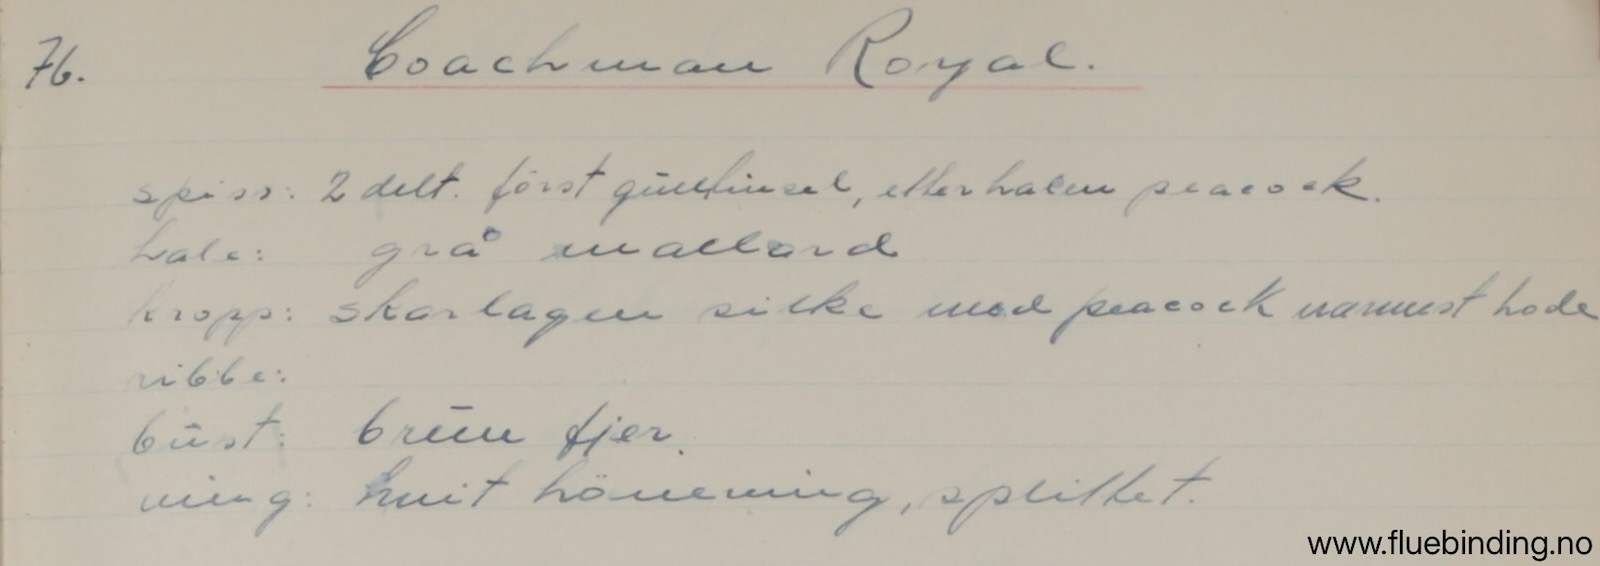 76. Coachman Royal.
spiss: 2 delt. först gulltinsel, etterhalen peacock.
hale: grå mallard
kropp: skarlagen silke med peacock narmest hode
ribbe:
bŭst: brŭn fjer.
ving: hvit höneving, splittet.
www.fluebinding.no